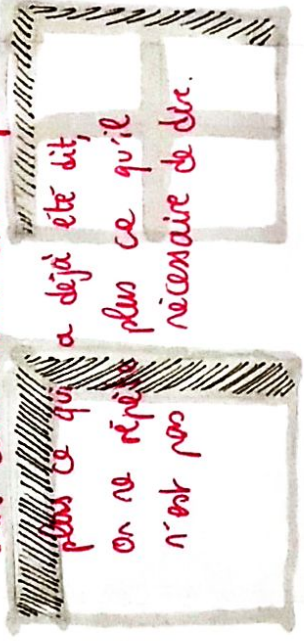 plus ce qui a déjà été dit,
on ne répète plus ce qu'il
n'est pas nécessaire de dire.